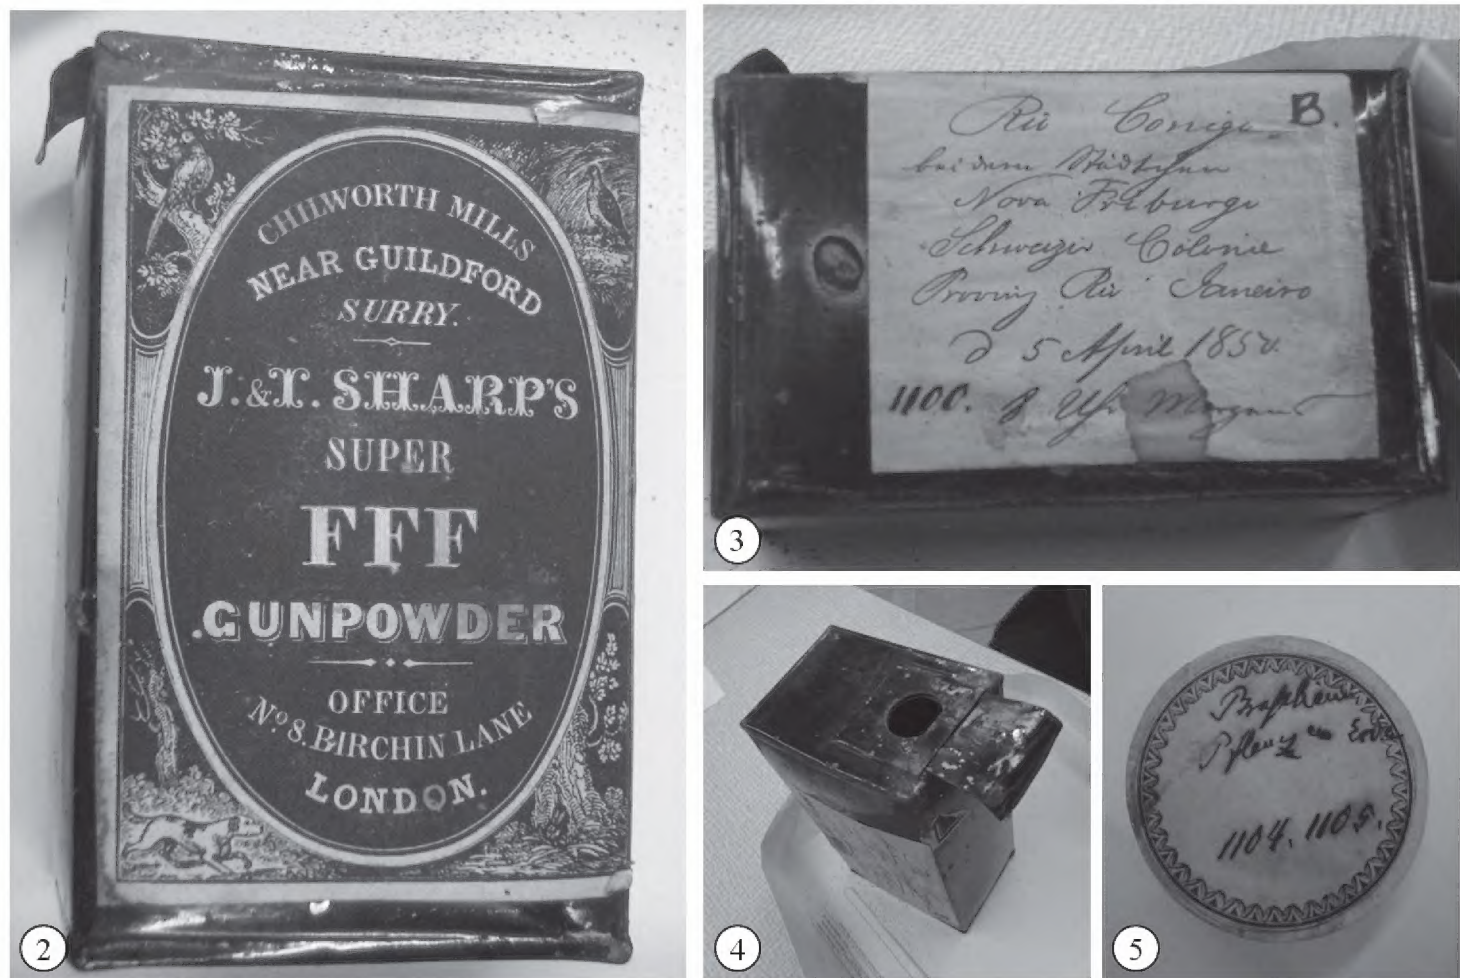 CHILWORTH MILLS
NEAR GUILDFORD
SURRY.
J. & T. SHARP'S
SUPER
FFF
GUNPOWDER
OFFICE
No 8. BIRCHIN LANE
LONDON.
2
B.
Rio Corrigo
bei dem Städtchen
Nova Friburgo
Schweizer Colonie
Provinz Rio Janeiro
d 5 April 1850.
1100. 8 Uhr Morgens
3
4
1104. 1105.
5